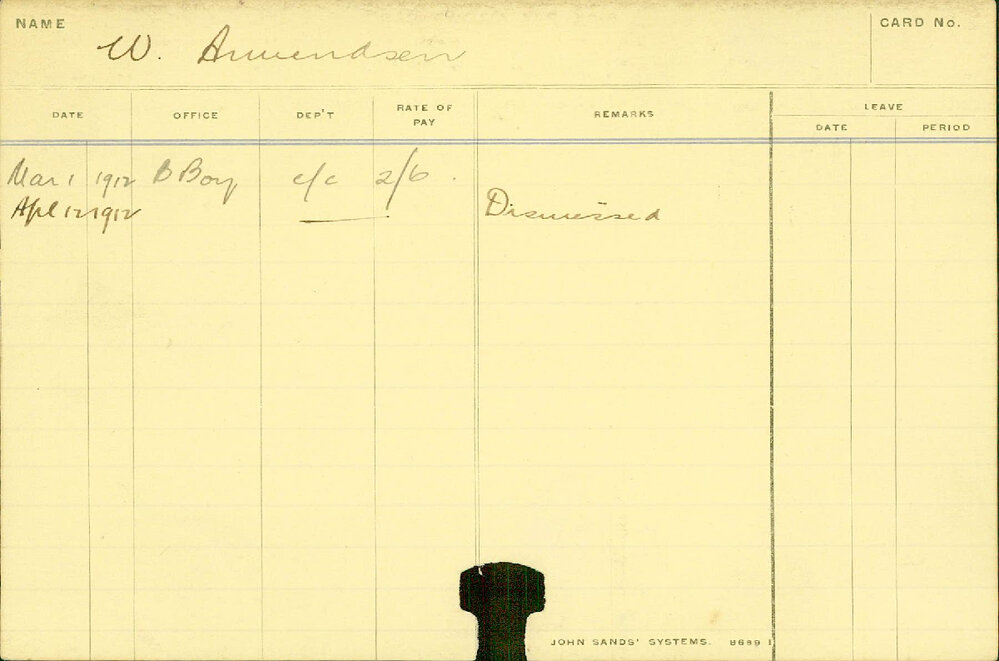 NAME W. Amundsen CARD No.
DATE OFFICE DEP'T RATE OF PAY REMARKS LEAVE
DATE PERIOD
Mar 1 1912 B Boy c/c 2/6.
Apl 12 1912 Dismissed
JOHN SANDS' SYSTEMS. 8689